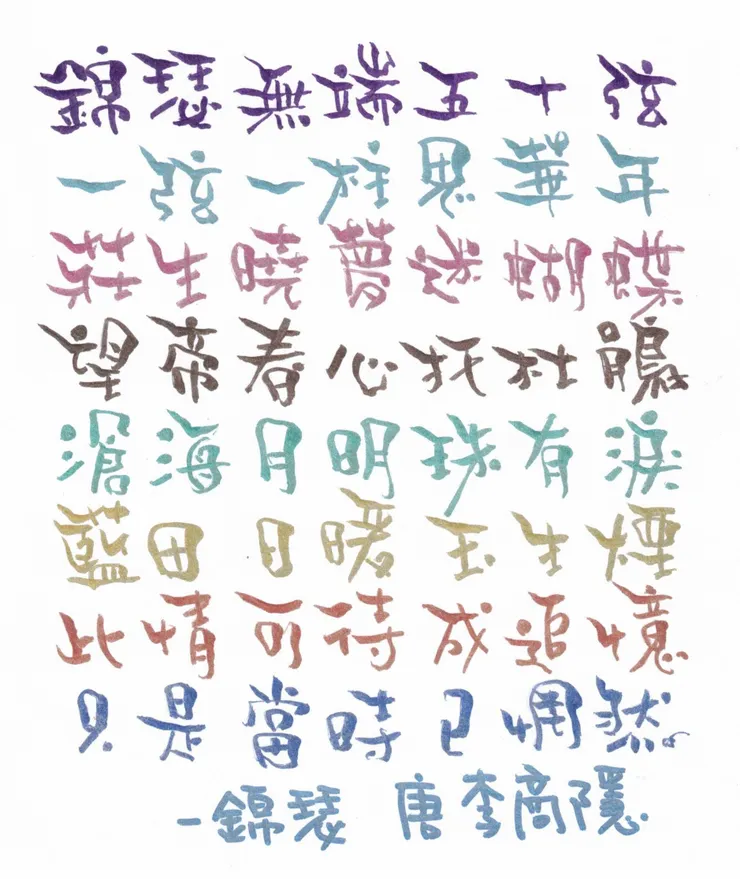 錦瑟無端五十弦
一弦一柱思華年
莊生曉夢迷蝴蝶
望帝春心托杜鵑
滄海月明珠有淚
藍田日暖玉生煙
此情可待成追憶
只是當時已惘然
-錦瑟 唐李商隱